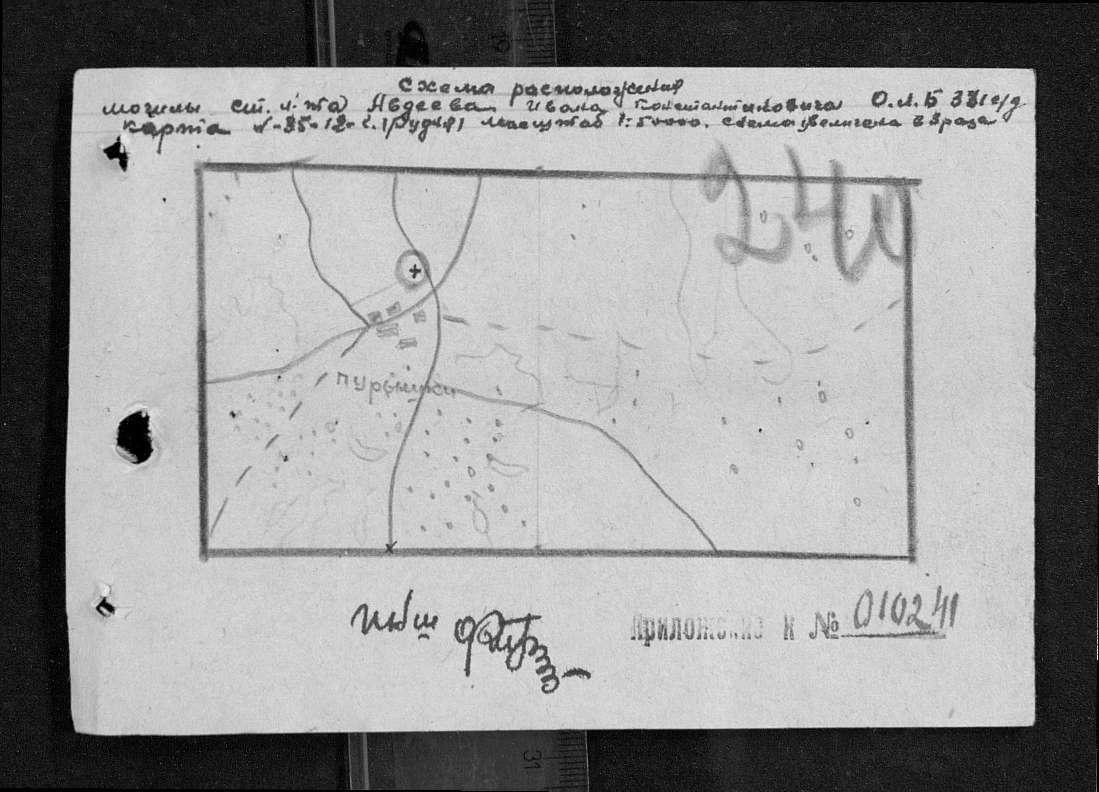 Схема расположения
могилы ст. л-та Авдеева Ивана Константиновича О.Л.Б 331 с/д
карта N-35-12- (Рудня) масштаб 1:50000. схема увеличена в 3 раза
240
Пурынки
ПНШ
Приложение к № 010241
31